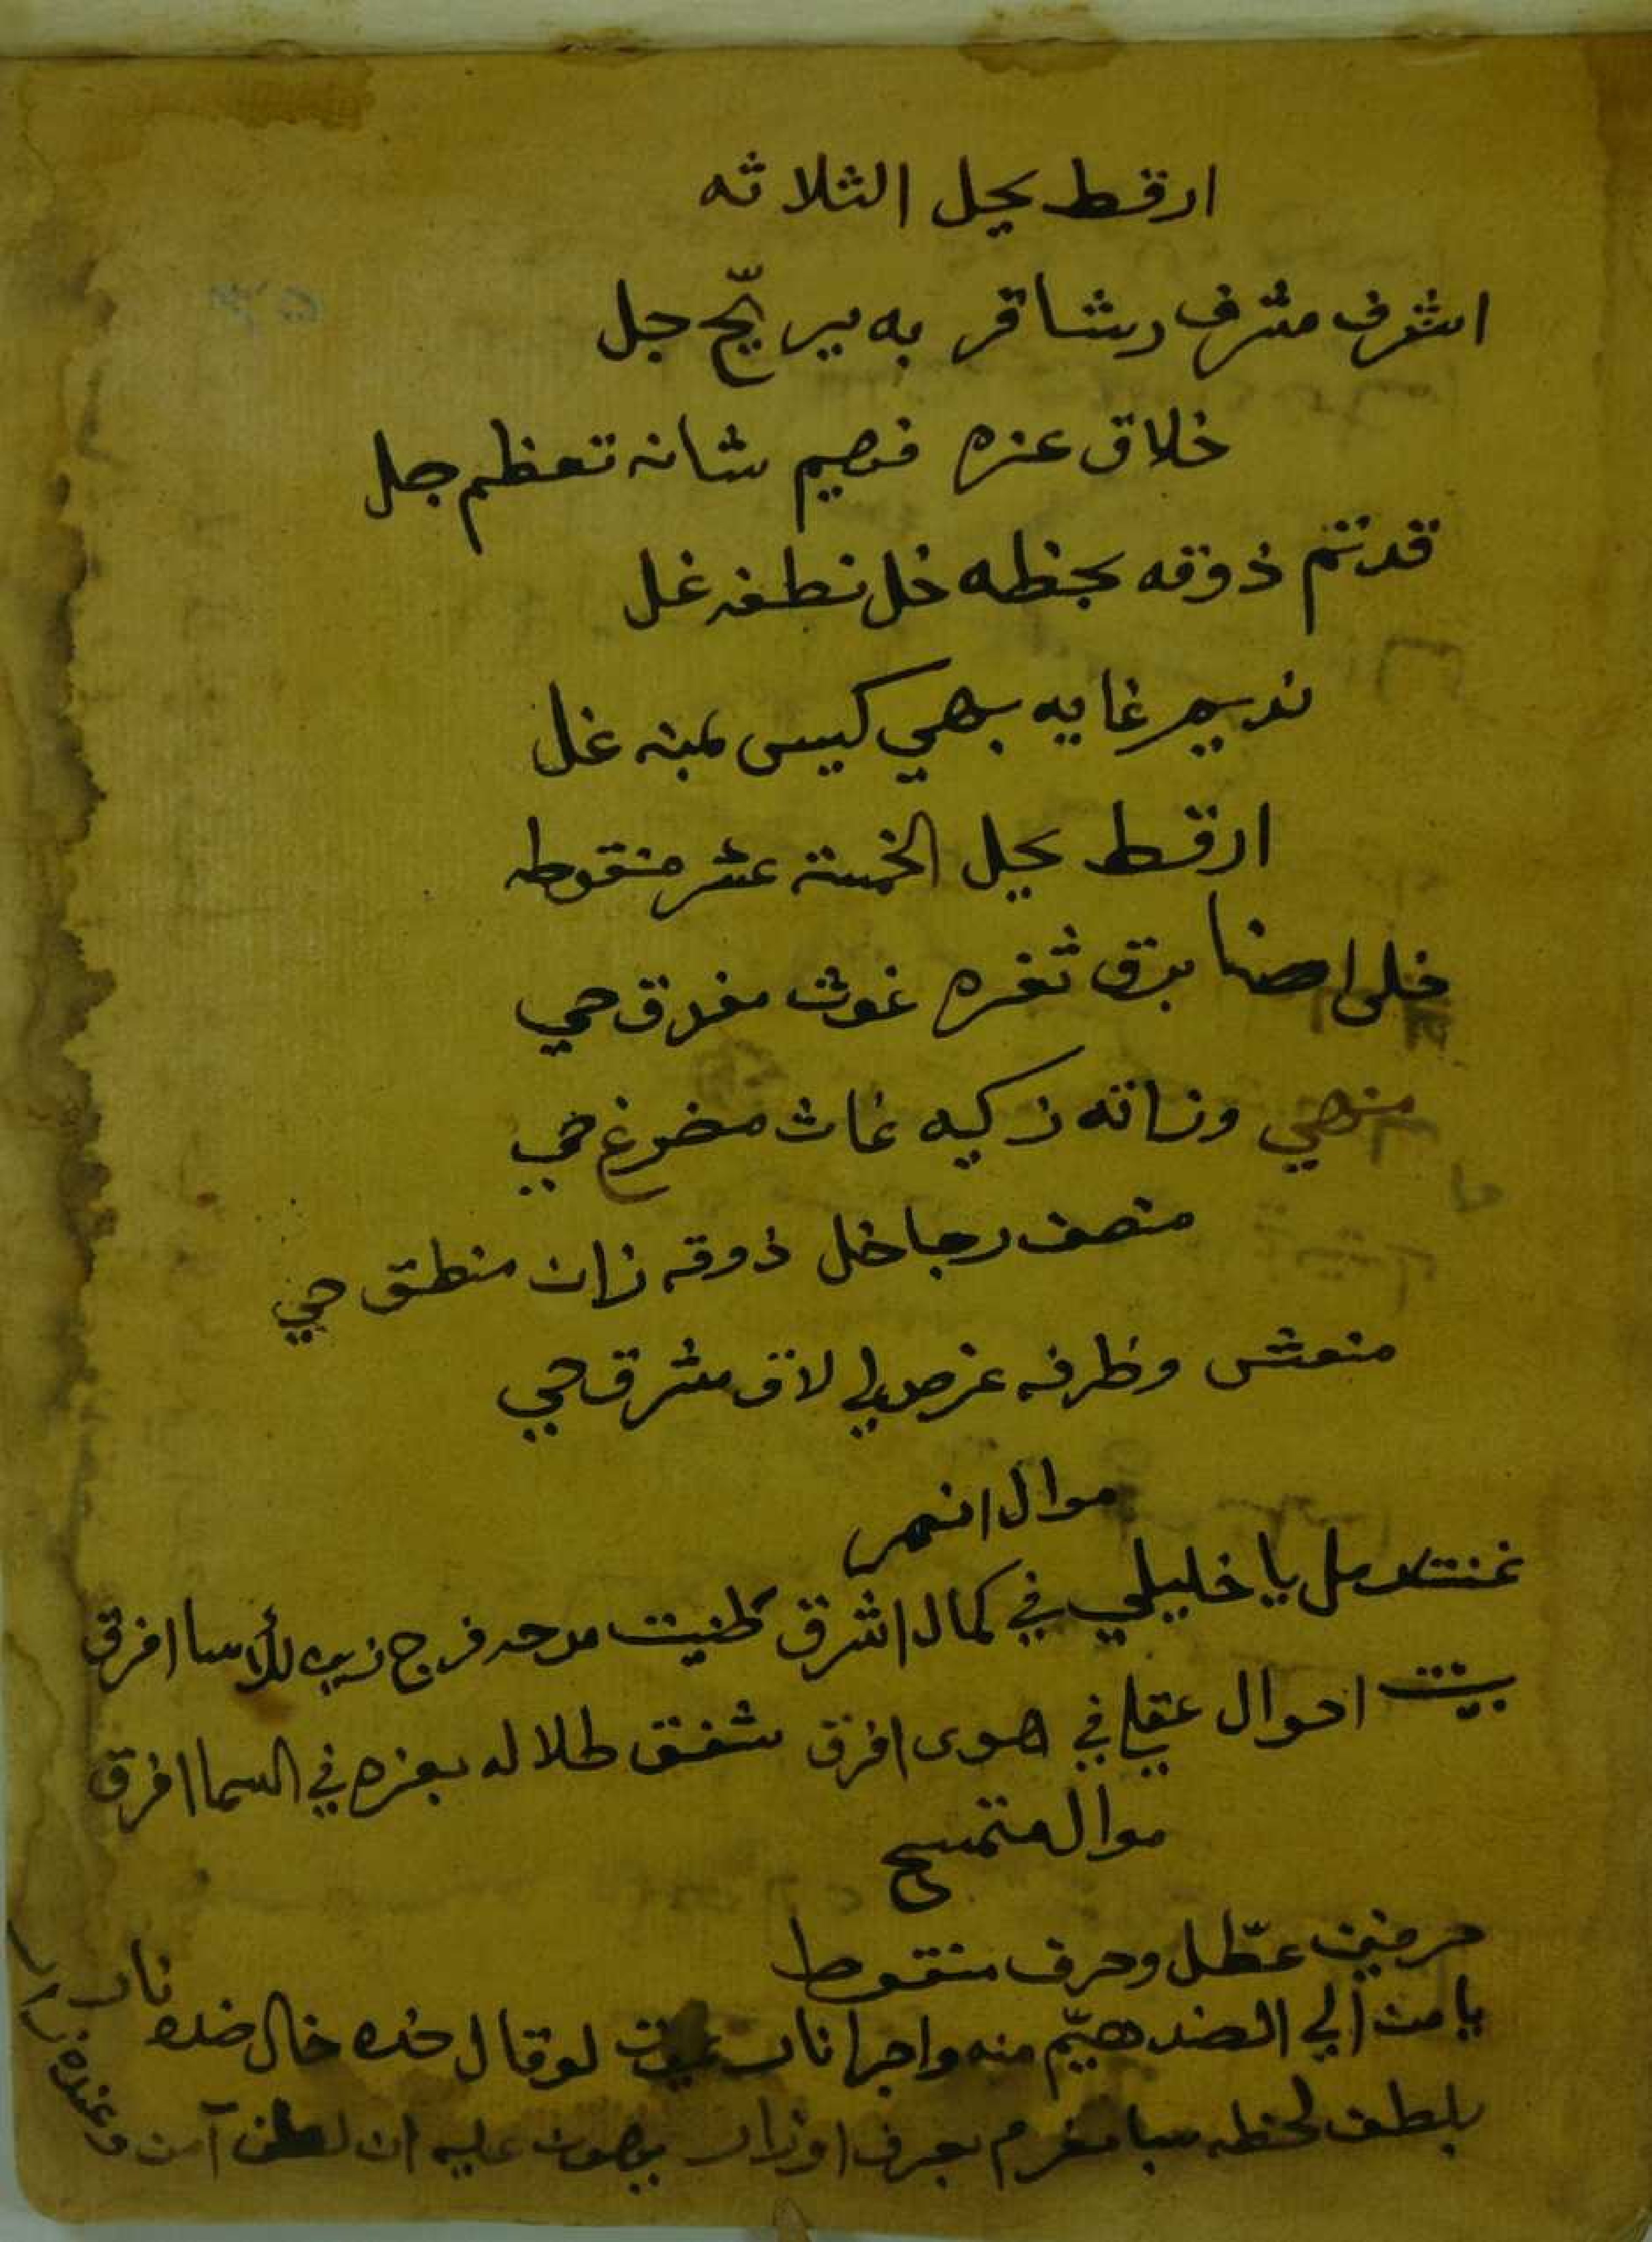 ارقط بحل الثلاثه
اشرف مشرف رشاقر به يريّح جل
خلاق عزه فهيم شانه تعظم جل
قدتم ذوقه بحظه خل نطفه غل
نديم غايه بهي كيس بمنه غل
ارقط بحل الخمسة عشر منقوطه
خلى برق ثغره غوث مغدق حي
منهي وزاته زكيه غاث حي
منصف رجا خل ذوقه زان منطق حي
منعش وظرفه لاق مشرق حي
موال
يا خليلي في كمال اشرق مدحه فرج للأسا افرق
بيت احوال عقلي في هوى افرق شفق طلاله بعزه في السما افرق
موال
حرفين عطّل وحرف منقوط
الضد هيّم منه واجرا ناب لو قال خده خال ضده ناب
بلطف لحظه سبا مغرم بعرف اوزار يهون عليه ان آمن وعنده زار